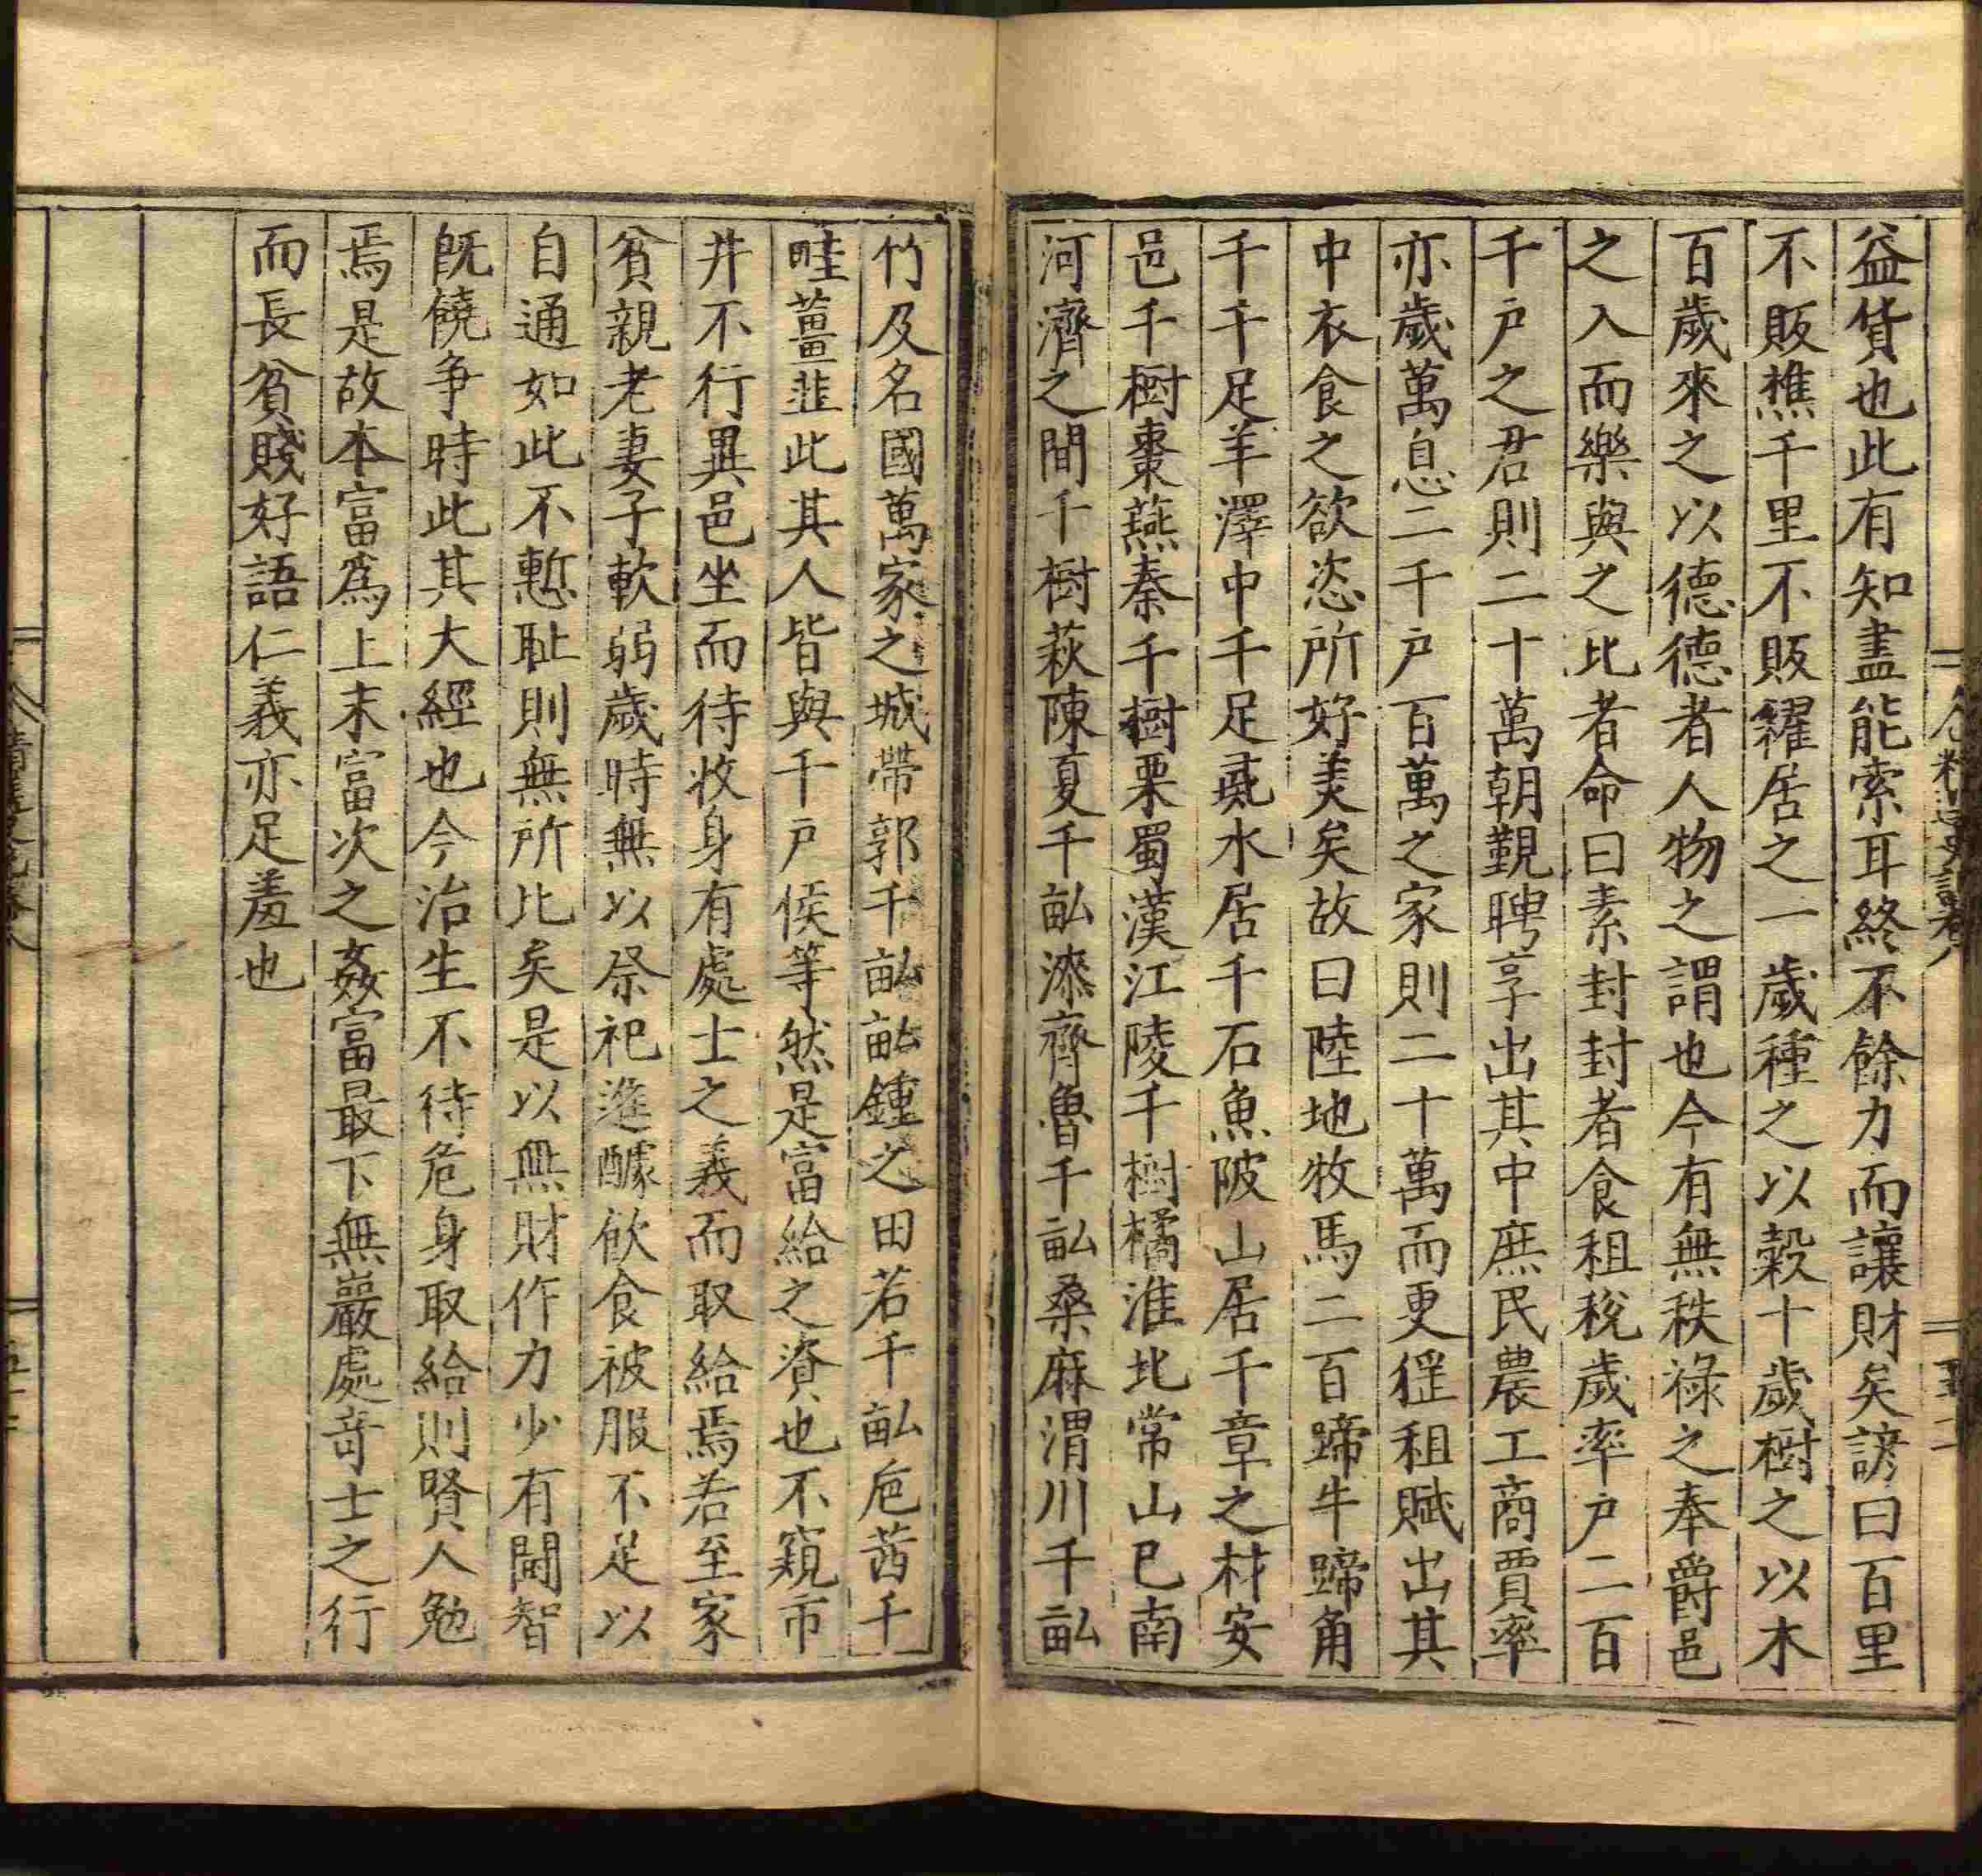 益貨也此有知盡能索耳終不餘力而讓財矣諺曰百里
不販樵千里不販糴居之一歲種之以糓十歲樹之以木
百歲來之以德德者人物之謂也今有無秩祿之奉爵邑
之入而樂與之比者命曰素封封者食租稅歲率户二百
千户之君則二十萬朝覲聘享出其中庶民農工商賈率
亦歲萬息二千户百萬之家則二十萬而更徭租賦出其
中衣食之欲恣所好美矣故曰陸地牧馬二百蹄牛蹄角
千千足羊澤中千足彘水居千石魚陂山居千章之材安
邑千樹棗燕秦千樹栗蜀漢江陵千樹橘淮北常山巳南
河濟之間千樹萩陳夏千畝漆齊魯千畝桑麻渭川千畝
竹及名國萬家之城帶郭千畝畝鍾之田若千畝巵茜千
畦薑韭此其人皆與千户侯等然是富給之資也不窺市
井不行異邑坐而待收身有處士之義而取給焉若至家
貧親老妻子軟弱歲時無以祭祀進醵飲食被服不足以
自通如此不慙耻則無所比矣是以無財作力少有鬭智
既饒争時此其大經也今治生不待危身取給則賢人勉
焉是故本富爲上末富次之姦富最下無巖處奇士之行
而長貧賤好語仁義亦足羞也